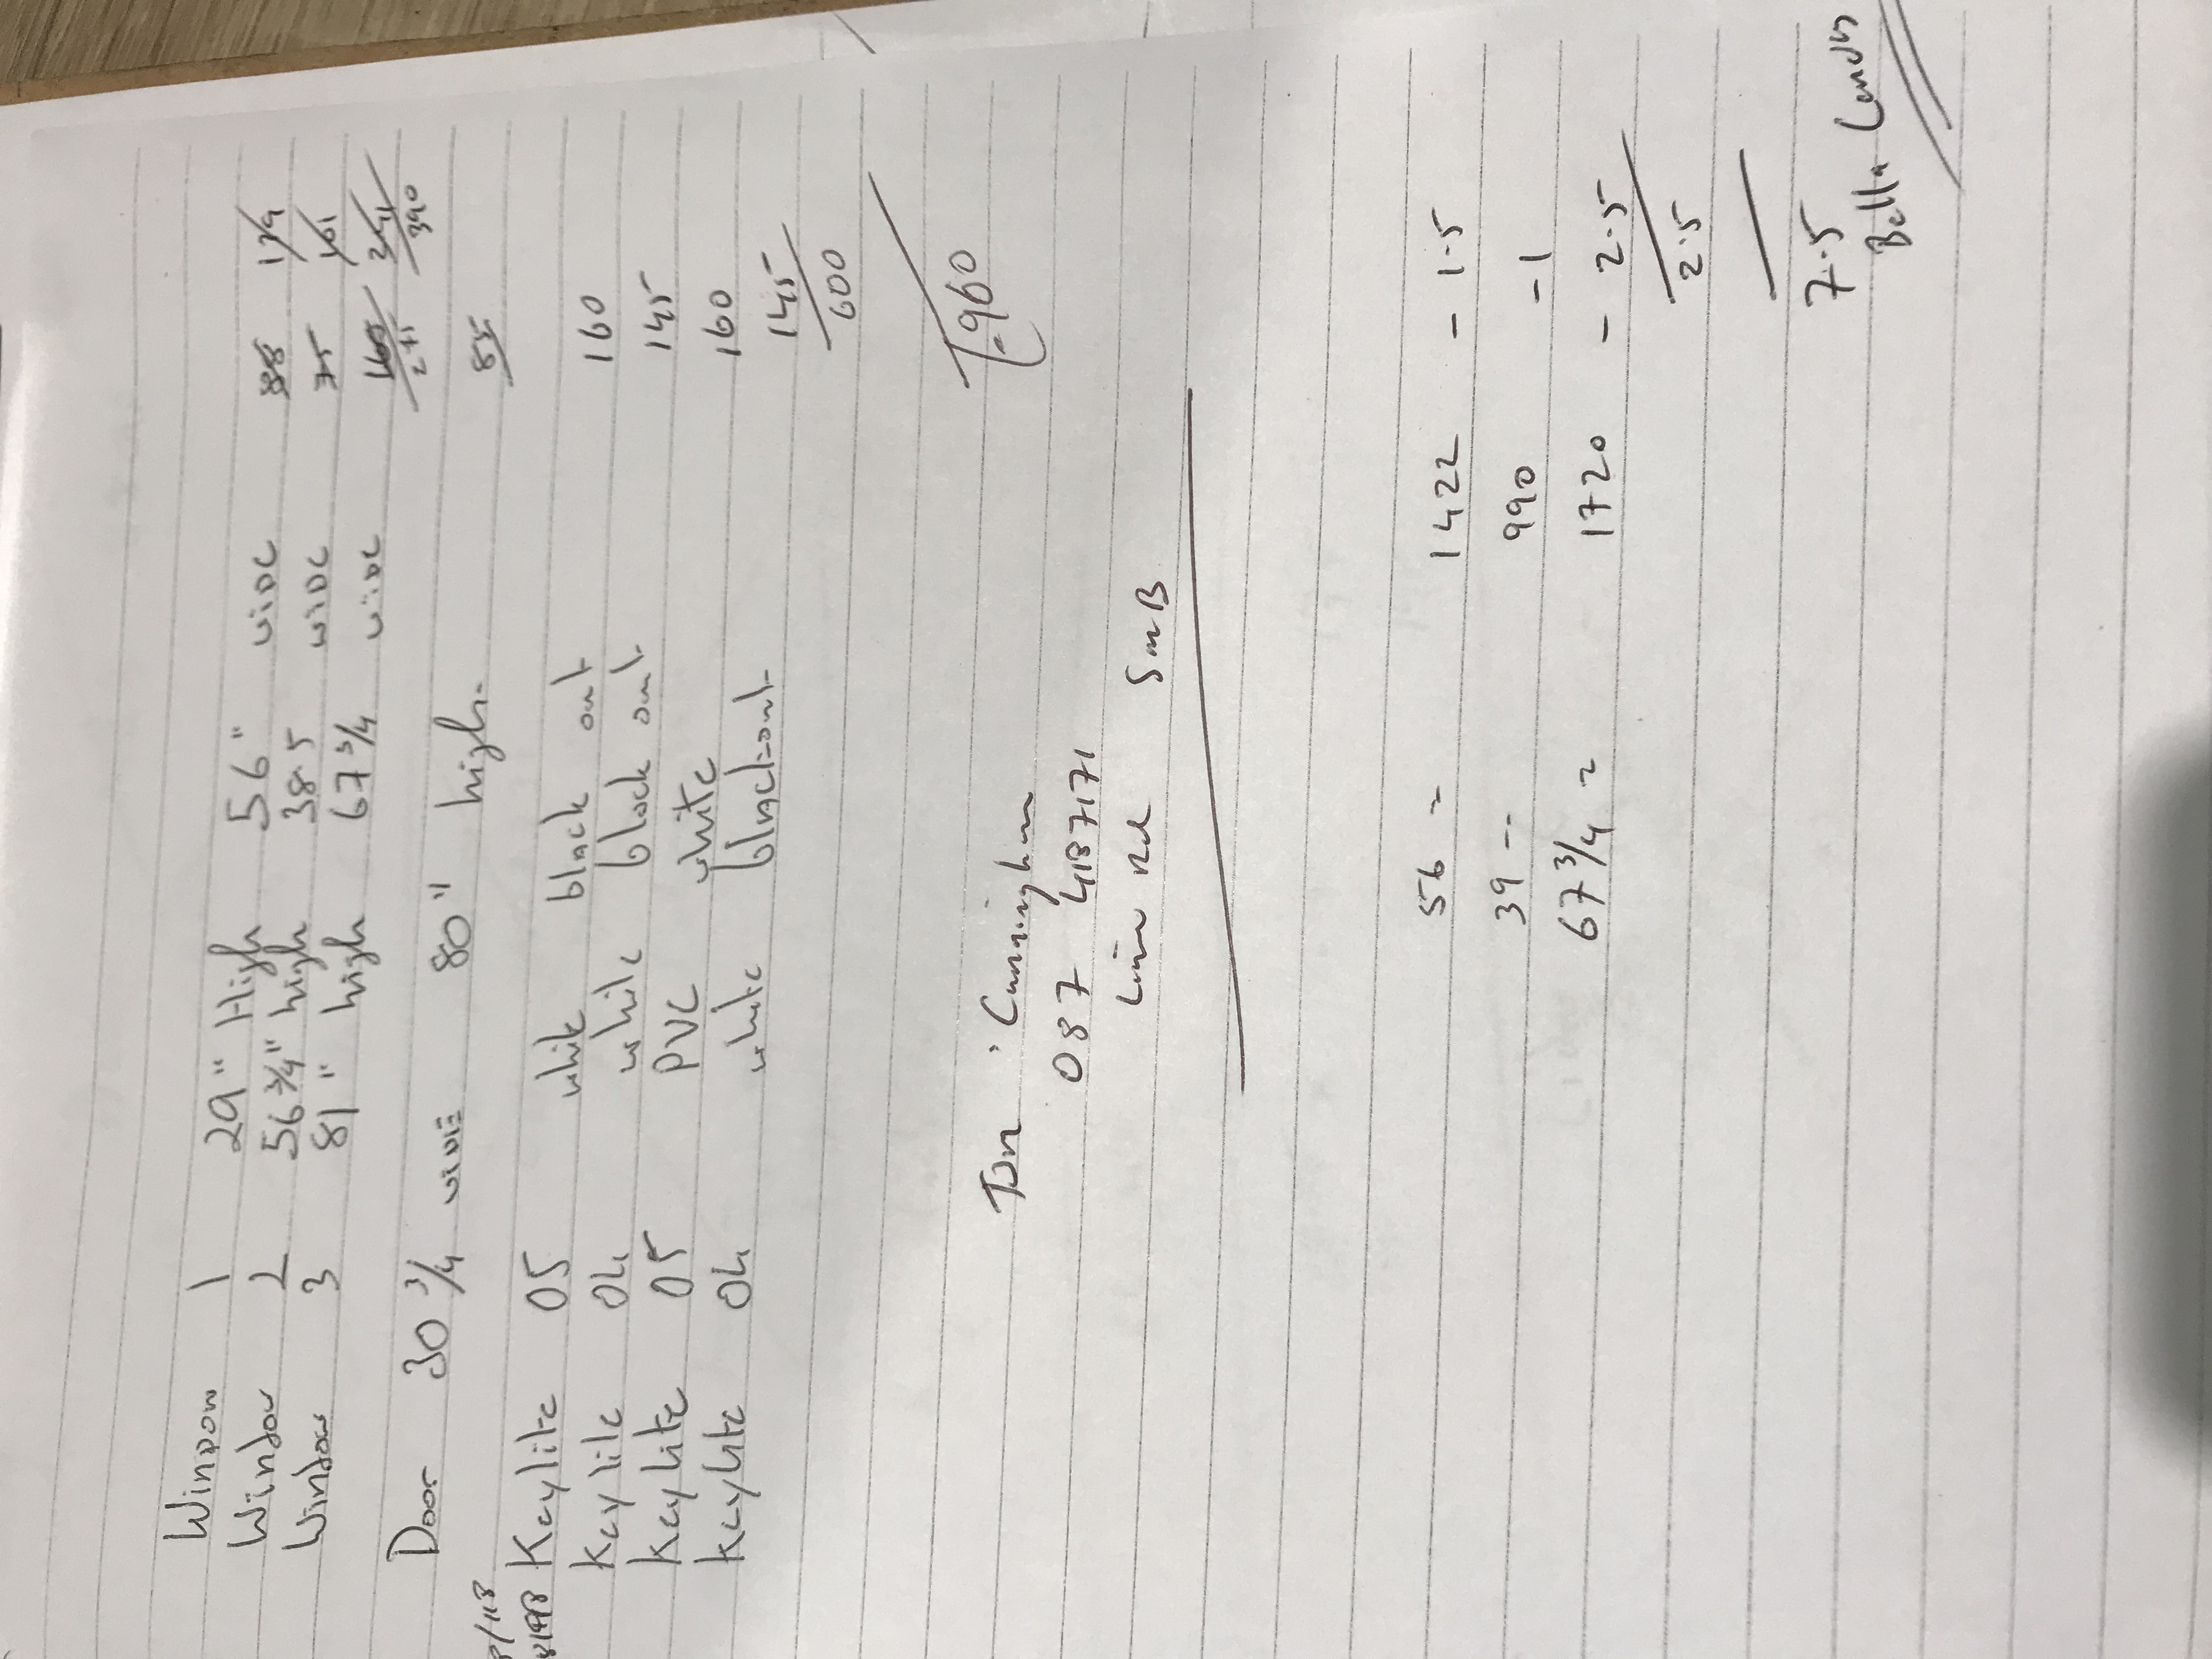 Window 1 29" High 56" wide 88 129
Window 2 56 3/4" high 38.5 wide 75 101
Window 3 81" high 67 3/4 wide 390
Door 30 3/4 wide 80" high 85
Keylite 05 white black out 160
Keylite 04 white block out 145
Keylite 05 PVC white 160
Keylite 04 white black-out 145
600
960
Cunningham
087 4187171
Rd
56 = 1422 - 1.5
39 -- 990 - 1
67 3/4 = 1720 - 2.5
2.5
7.5
Bella